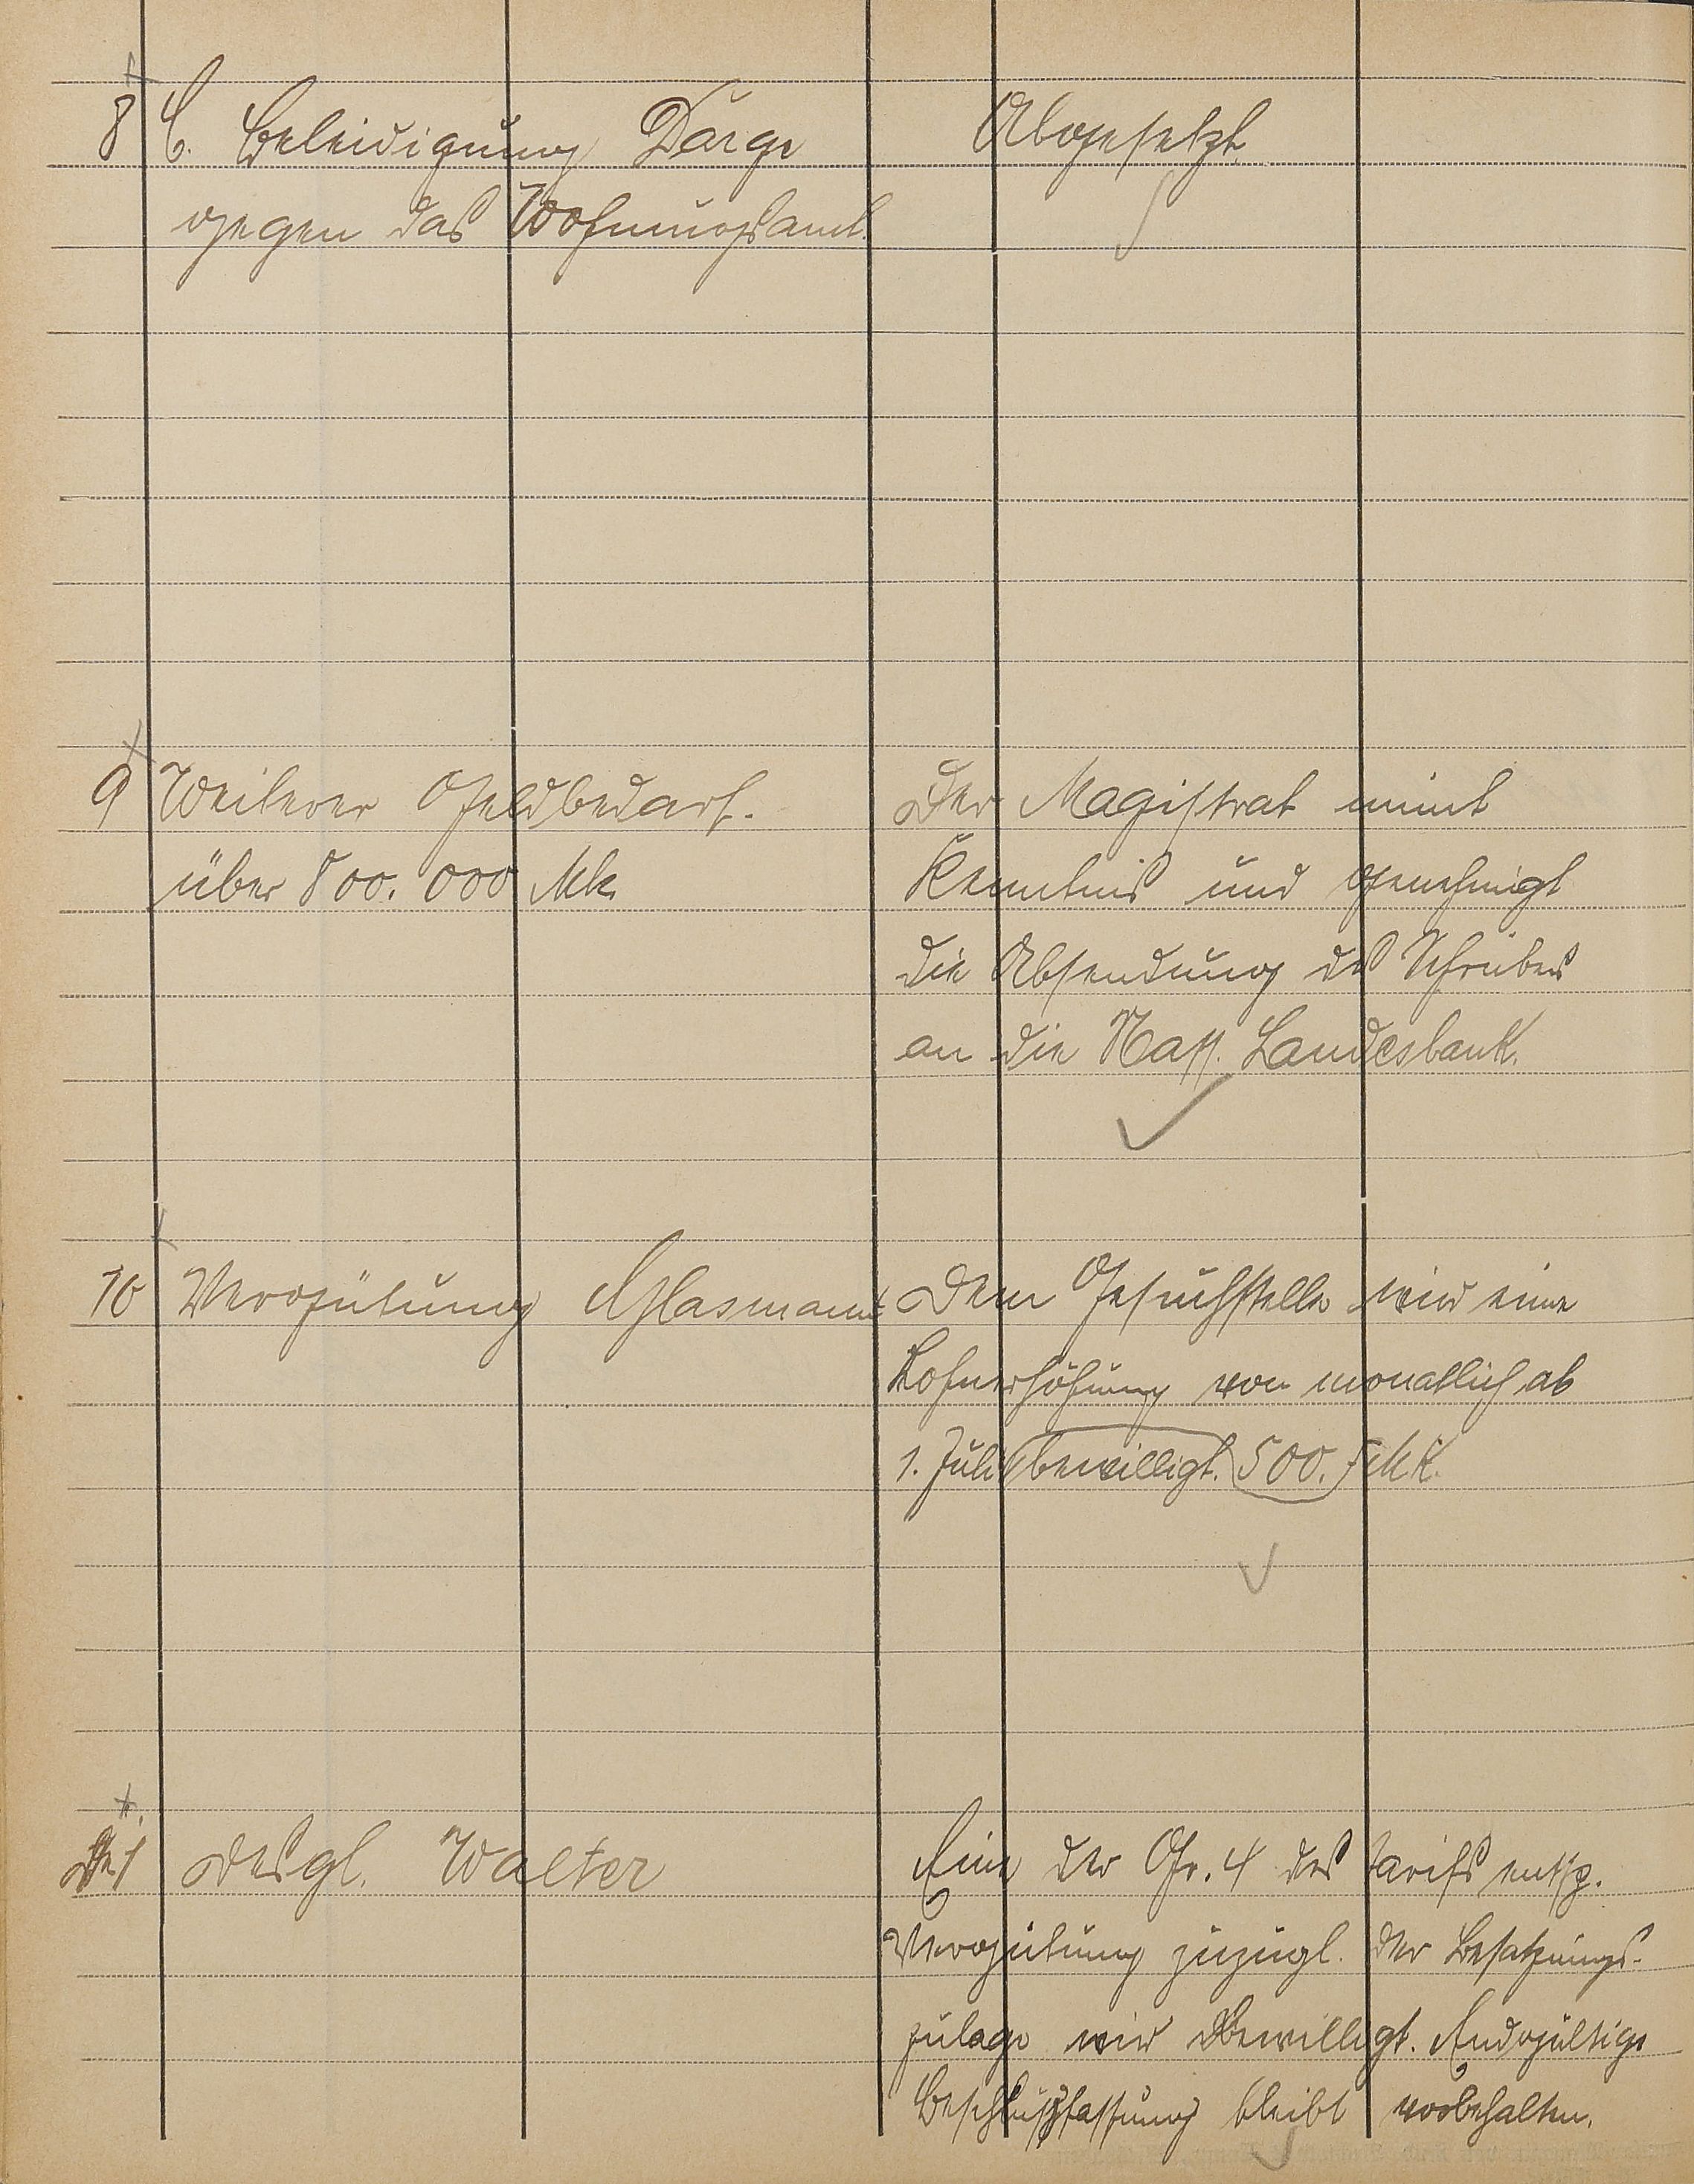 8 b. Beleidigung Darge
gegen das Wohnungsamt.
Abgesetzt
9 Weiterer Geldbedarf.
über 800.000 Mk
Der Magistrat nimt
Kenntnis und genehmigt
die Absendung des Schreibens
an die Nass. Landesbank.
10 Vergütung Glasmann
Dem Gesuchsteller wird eine
Lohnerhöhung von monatlich ab
1. Juli bewilligt. 500. Mk.
11 desgl. Walter
Eine der Gr. 4 des Tarifs entsp.
Vergütung zuzügl. der Besatzungs-
zulage wird bewilligt. Endgültige
Beschlußfassung bleibt vorbehalten.